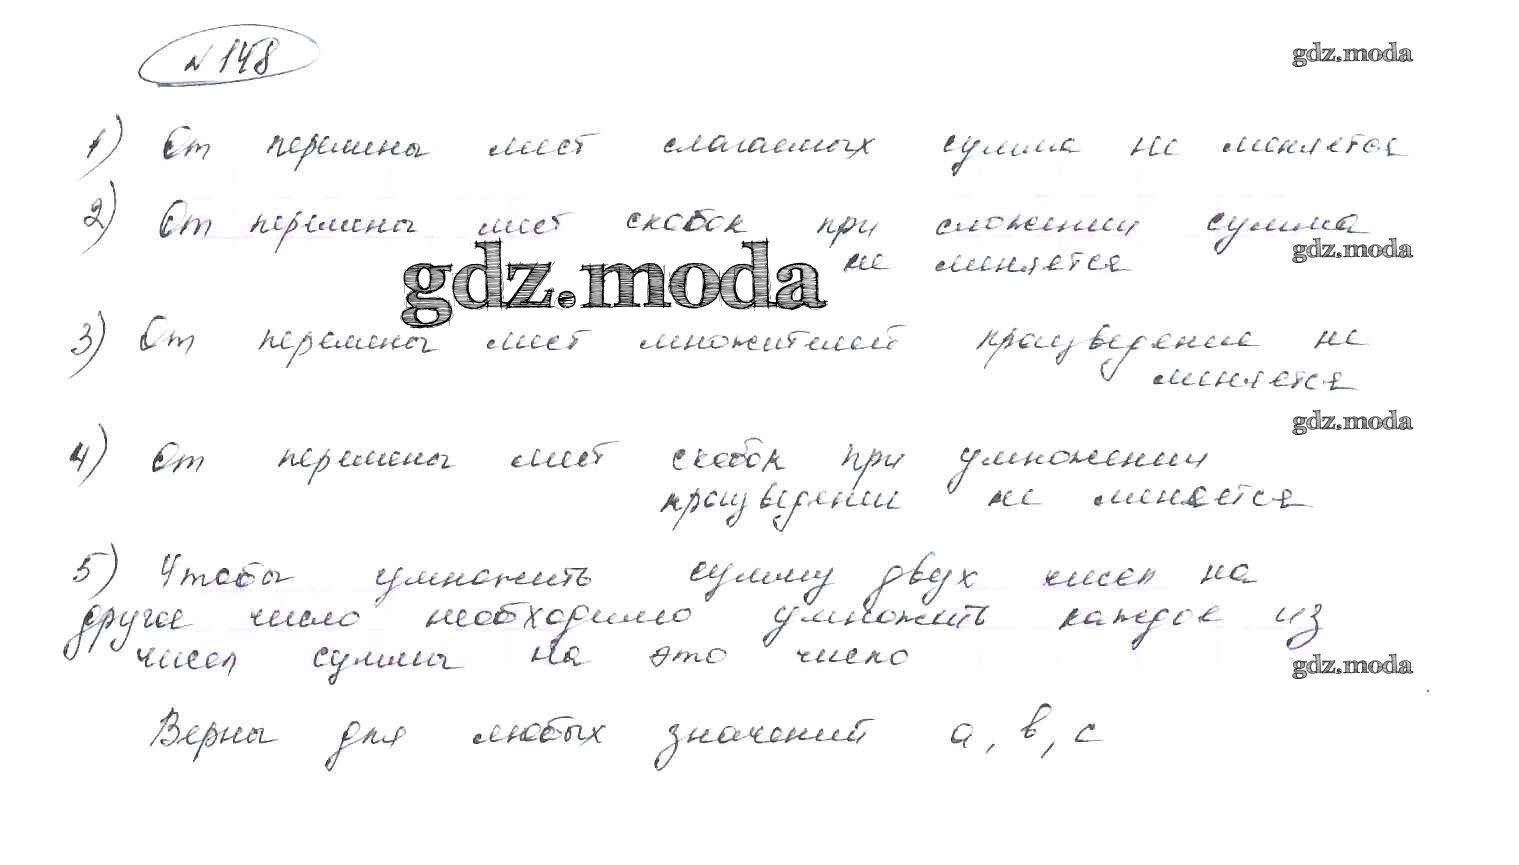 № 148
gdz.moda
1) От перемены мест слагаемых сумма не меняется
2) От перемены мест скобок при сложении сумма
gdz.moda
не меняется
gdz.moda
3) От перемены мест множителей произведение не
меняется
gdz.moda
4) От перемены мест скобок при умножении
произведении не меняется
5) Чтобы умножить сумму двух чисел на
другое число необходимо умножить каждое из
чисел суммы на это число
gdz.moda
Верны для любых значений a, b, c